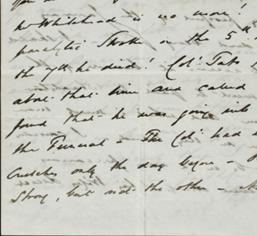 Whitehead is no more!
Stroke on the 5th
the 7th he died! Col. Tate
about that time and called
found that he was going into
the Funeral - The Col. had
Crutches only the day before -
Strong, but not the other -